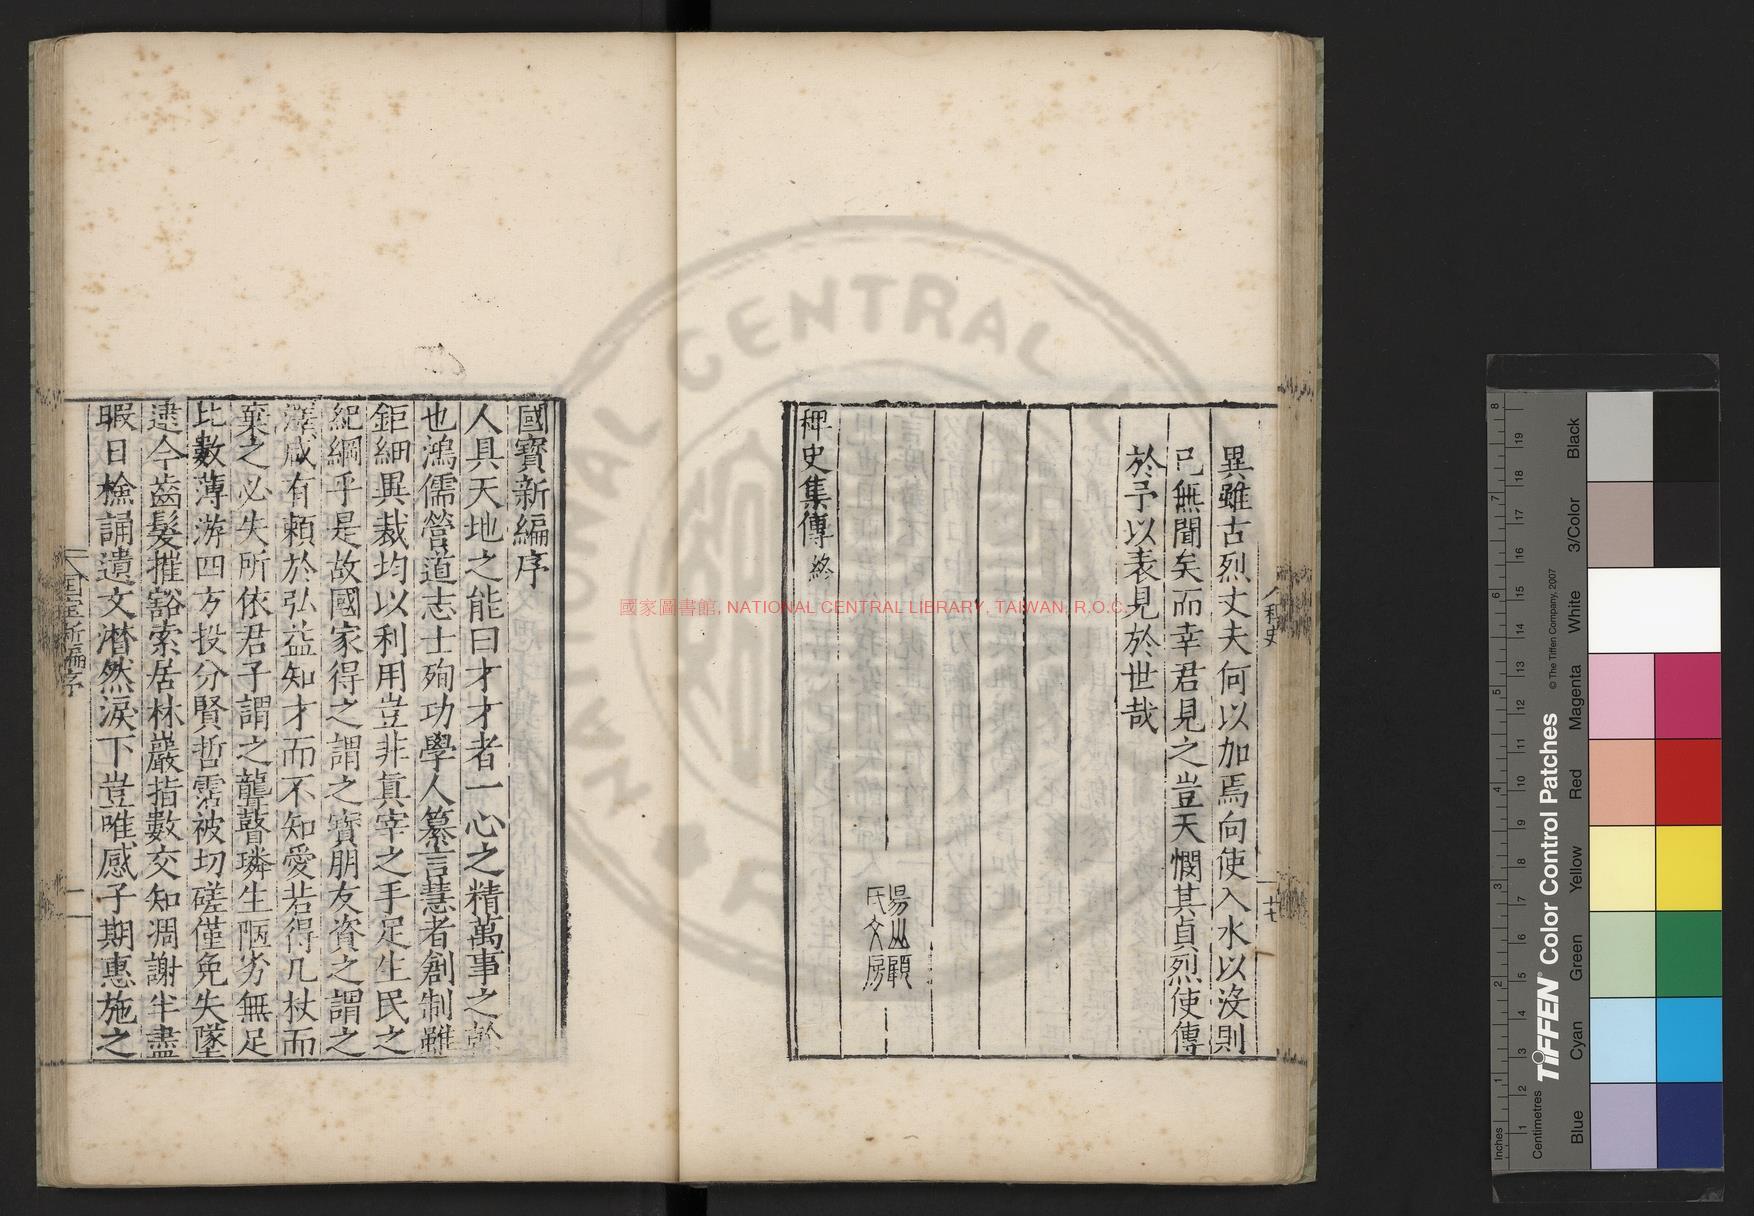 異雖古烈丈夫何以加焉向使入水以沒則
已無聞矣而幸君見之豈天憫其貞烈使傳
於予以表見於世哉
陽山顧
氏文房
稗史集傳 終
稗史
廿七
國寶新編序
人具天地之能曰才才者一心之精萬事之幹
也鴻儒營道志士殉功學人纂言慧者創制雖
鉅細異裁均以利用豈非真宰之手足生民之
紀綱乎是故國家得之謂之寶朋友資之謂之
澤咸有賴於弘益知才而不知愛若得几杖而
棄之必失所依君子謂之聾瞽璘生陋劣無足
比數薄游四方投分賢哲霑被切磋僅免失墜
逮今齒髮摧豁索居林巖指數交知凋謝半盡
暇日檢誦遺文潸然淚下豈唯感子期惠施之
国宝新編序
一
國家圖書館, NATIONAL CENTRAL LIBRARY, TAIWAN, R.O.C.
NATIONAL CENTRAL
Inches
Centimetres
TIFFEN® Color Control Patches
© The Tiffen Company, 2007
Blue
Cyan
Green
Yellow
Red
Magenta
White
3/Color
Black
1 2 3 4 5 6 7 8
1 2 3 4 5 6 7 8 9 10 11 12 13 14 15 16 17 18 19